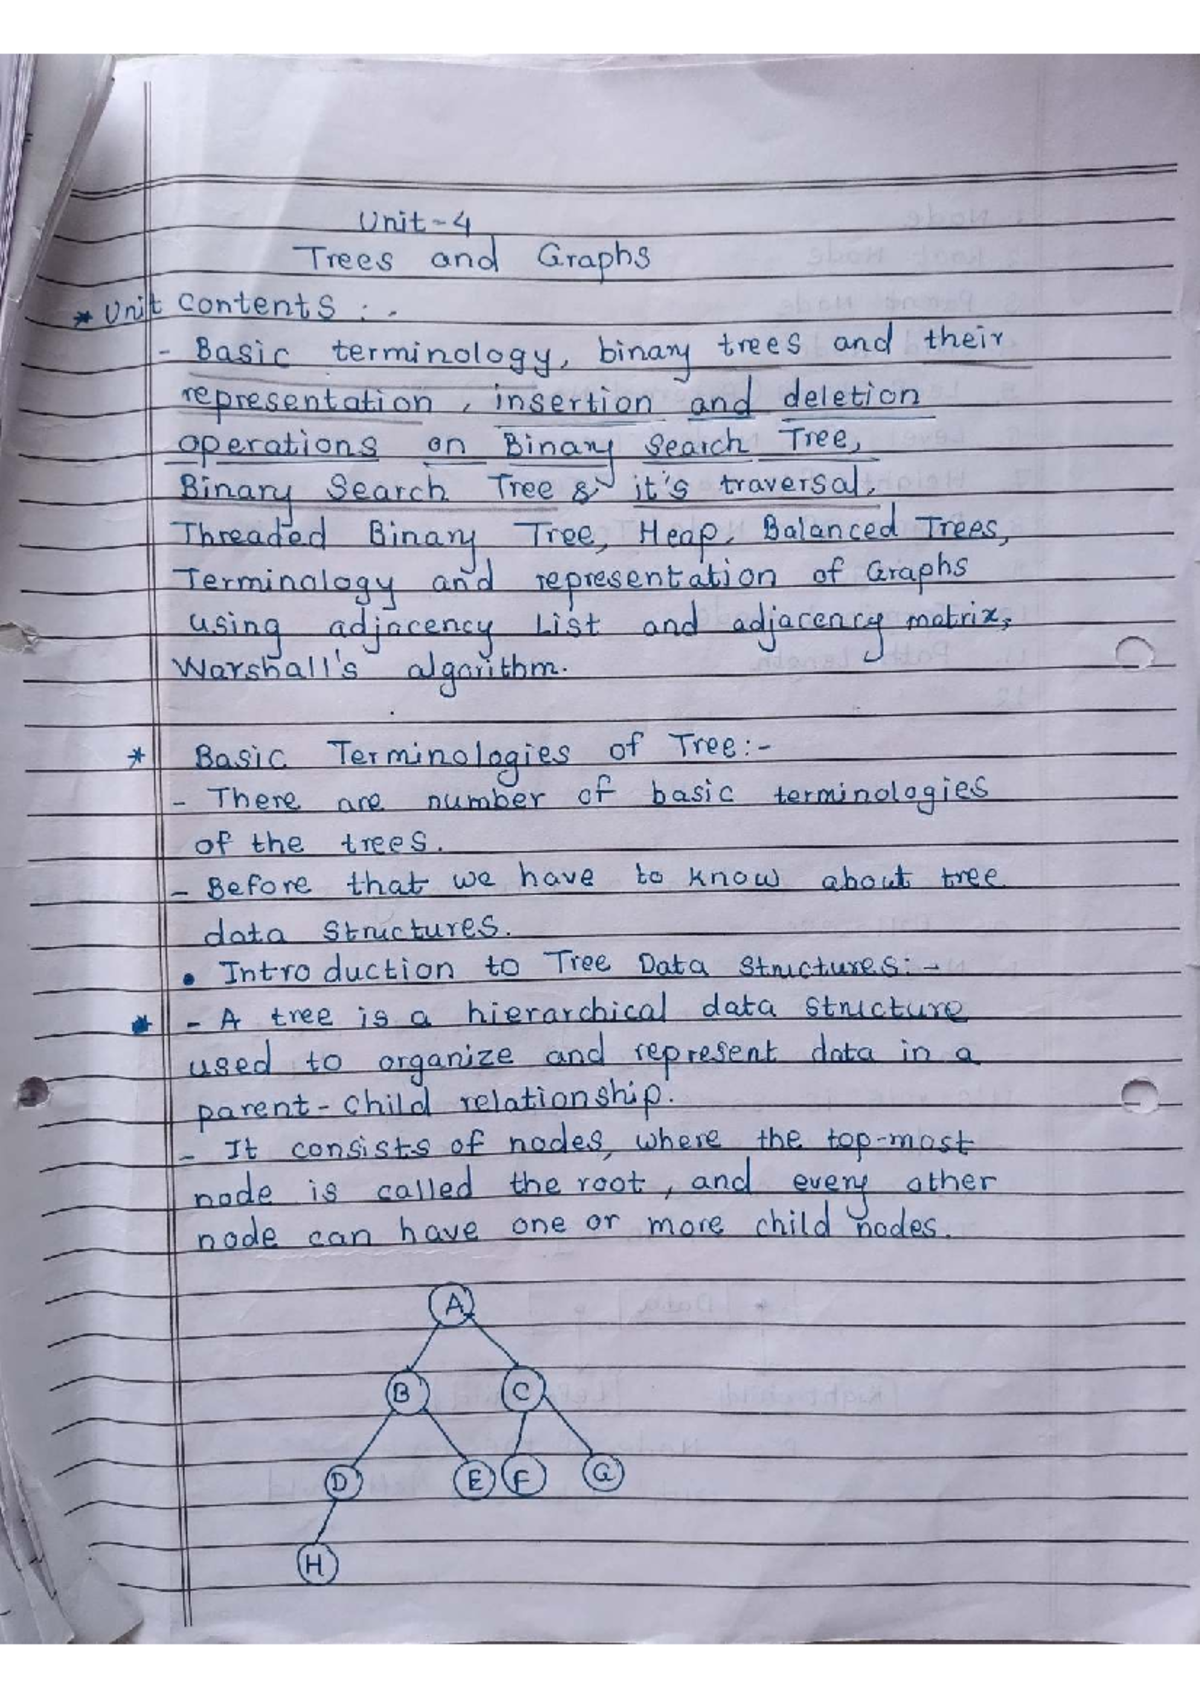 Unit-4
Trees and Graphs
* Unit Contents :-
- Basic terminology, binary trees and their
representation, insertion and deletion
operations on Binary Search Tree,
Binary Search Tree & it's traversal,
Threaded Binary Tree, Heap, Balanced Trees,
Terminology and representation of Graphs
using adjacency List and adjacency matrix,
Warshall's algorithm.
* Basic Terminologies of Tree:-
- There are number of basic terminologies
of the trees.
- Before that we have to know about tree
data structures.
• Introduction to Tree Data Structures:-
* - A tree is a hierarchical data structure
used to organize and represent data in a
parent-child relationship.
- It consists of nodes, where the top-most
node is called the root, and every other
node can have one or more child nodes.
A
B C
D E F G
H